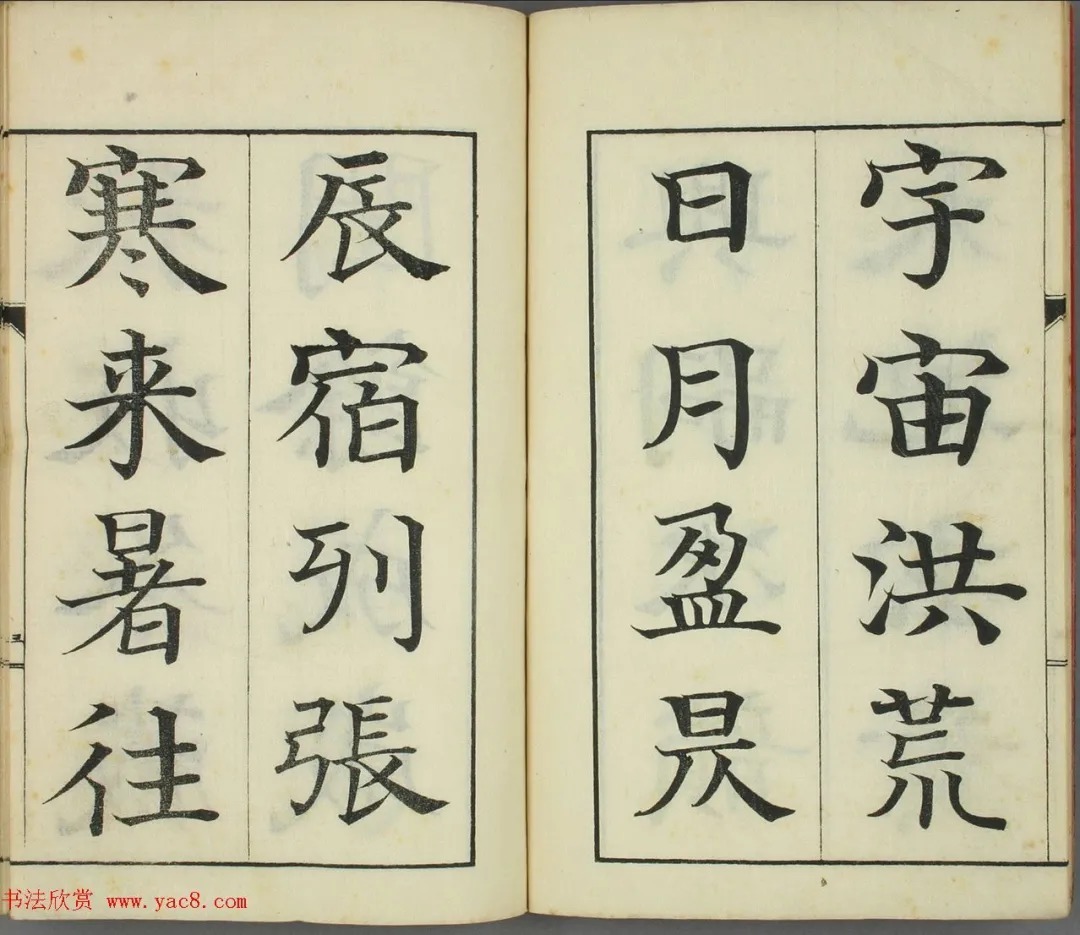 宇宙洪荒
日月盈昃
辰宿列張
寒来暑往
书法欣赏 www.yac8.com